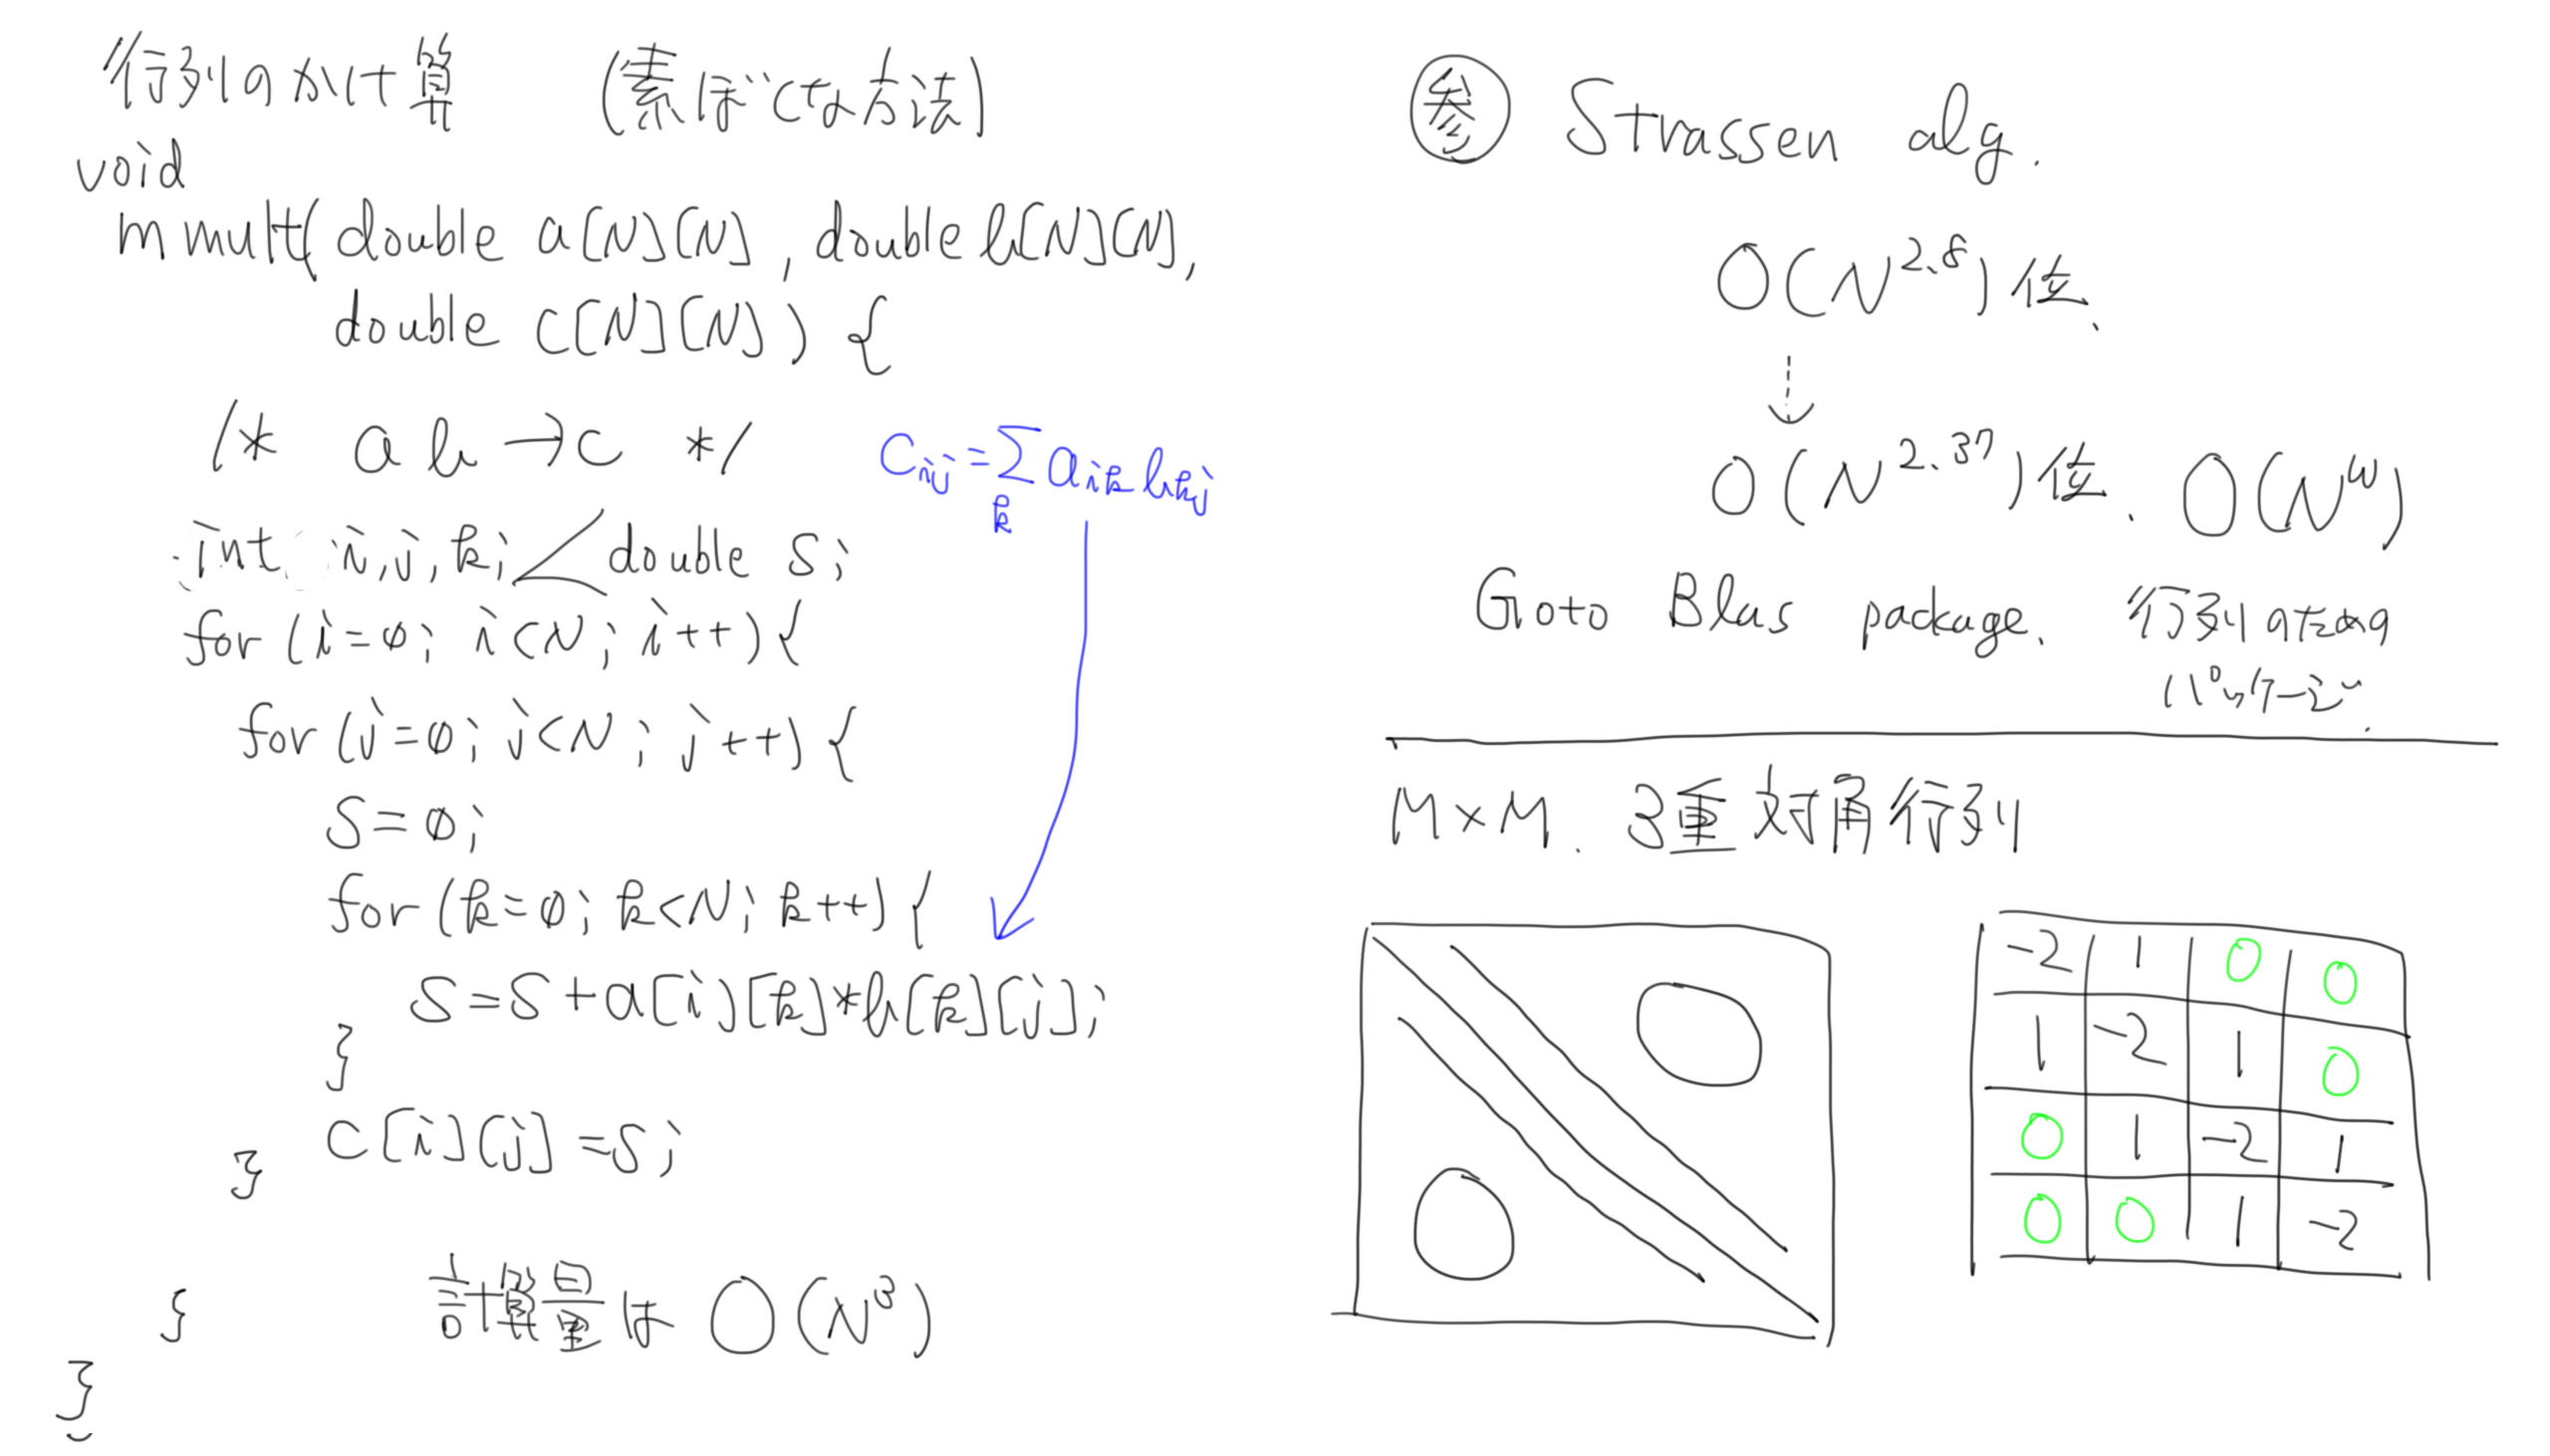 行列のかけ算 (素ぼくな方法)
void
mmult(double a[N][N], double b[N][N],
double c[N][N]) {
/* a b → c */
c_ij = Σ_k a_ik b_kj
int i, j, k; / double s;
for (i=0; i<N; i++){
for (j=0; j<N; j++){
s=0;
for (k=0; k<N; k++){
s=s+a[i][k]*b[k][j];
}
c[i][j]=s;
}
}
計算量は O(N^3)
}
参 Strassen alg.
O(N^2.8)位、
↓
O(N^2.37)位、 O(N^ω)
Goto Blas package. 行列のための
パッケージ.
M×M. 3重対角行列
0
0
-2 1 0 0
1 -2 1 0
0 1 -2 1
0 0 1 -2